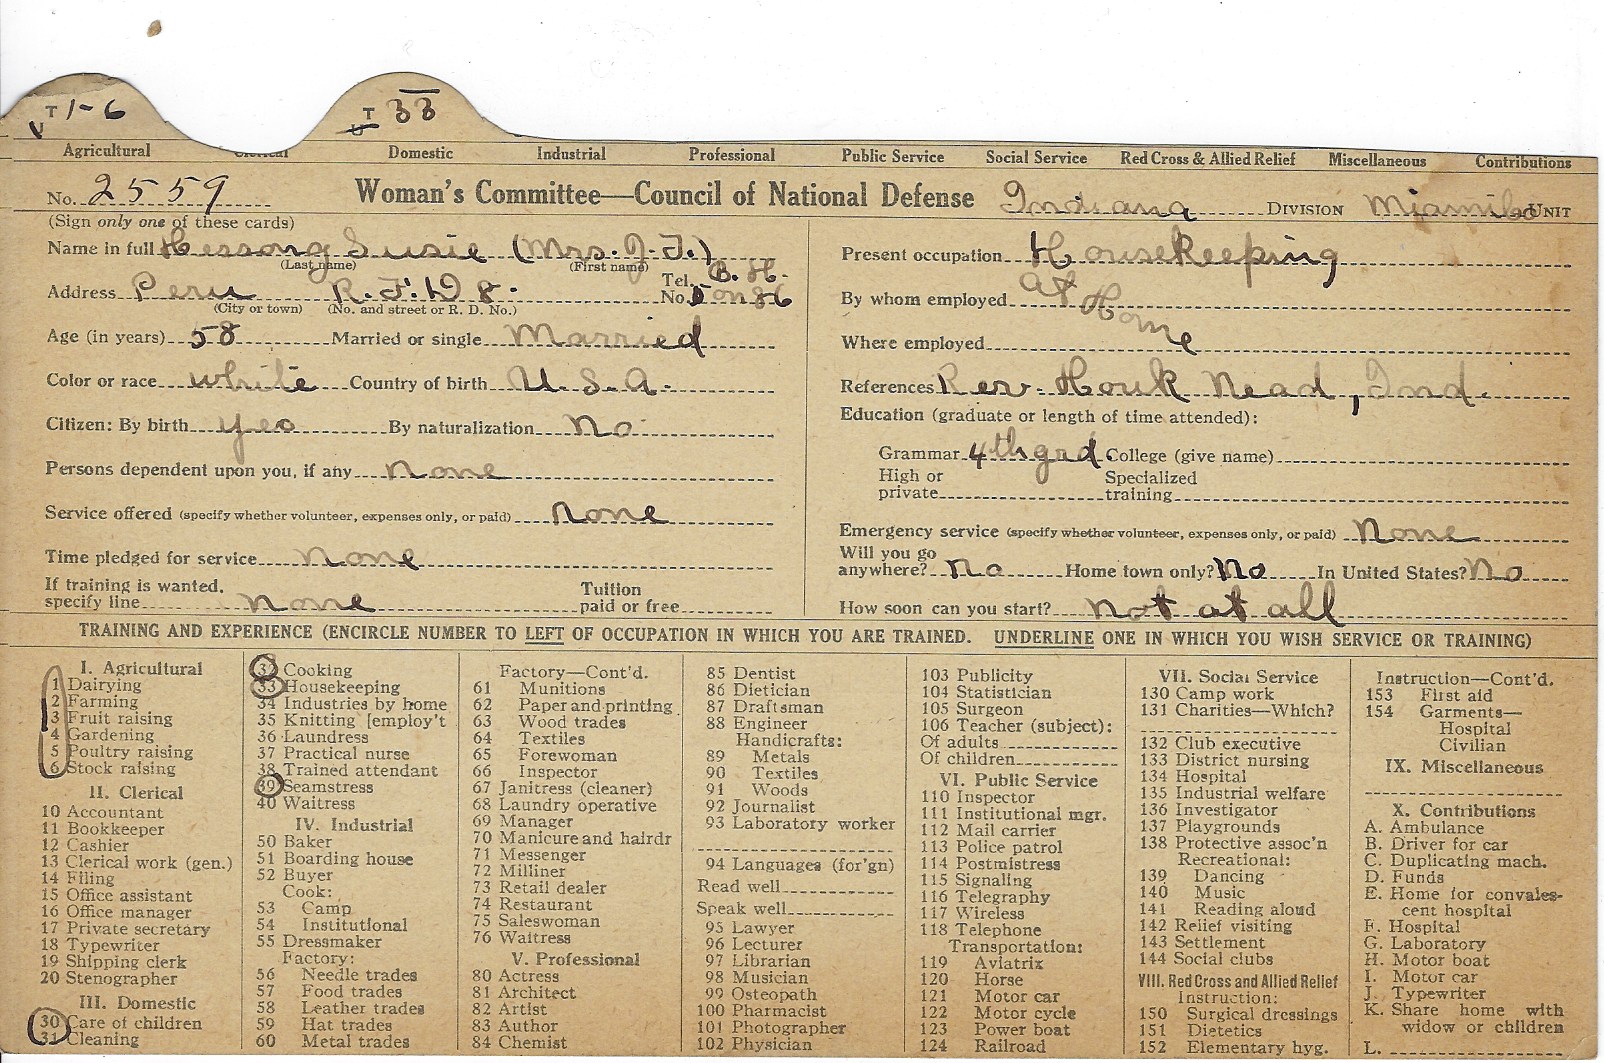 T 1-6
T 33
Agricultural Domestic Industrial Professional Public Service Social Service Red Cross & Allied Relief Miscellaneous Contributions
No. 2559 Woman's Committee—Council of National Defense Indiana DIVISION UNIT
(Sign only one of these cards)
Name in full Hessong Susie (Mrs. J. F.)
(Last name) (First name)
Address Peru R.F.D 8. Tel. No. B. H.
(City or town) (No. and street or R. D. No.)
Age (in years) 58 Married or single Married
Color or race white Country of birth U.S.A.
Citizen: By birth yes By naturalization No
Persons dependent upon you, if any none
Service offered (specify whether volunteer, expenses only, or paid) none
Time pledged for service none
If training is wanted, specify line none Tuition paid or free
Present occupation Housekeeping
By whom employed at Home
Where employed
References Rev. Houk Nead, Ind.
Education (graduate or length of time attended):
Grammar 4th grd College (give name)
High or private Specialized training
Emergency service (specify whether volunteer, expenses only, or paid) None
Will you go anywhere? No Home town only? No In United States? No
How soon can you start? not at all
TRAINING AND EXPERIENCE (ENCIRCLE NUMBER TO LEFT OF OCCUPATION IN WHICH YOU ARE TRAINED. UNDERLINE ONE IN WHICH YOU WISH SERVICE OR TRAINING)
I. Agricultural
1 Dairying
2 Farming
3 Fruit raising
4 Gardening
5 Poultry raising
6 Stock raising
II. Clerical
10 Accountant
11 Bookkeeper
12 Cashier
13 Clerical work (gen.)
14 Filing
15 Office assistant
16 Office manager
17 Private secretary
18 Typewriter
19 Shipping clerk
20 Stenographer
III. Domestic
30 Care of children
31 Cleaning
32 Cooking
33 Housekeeping
34 Industries by home
35 Knitting [employ't
36 Laundress
37 Practical nurse
38 Trained attendant
39 Seamstress
40 Waitress
IV. Industrial
50 Baker
51 Boarding house
52 Buyer
Cook:
53 Camp
54 Institutional
55 Dressmaker
Factory:
56 Needle trades
57 Food trades
58 Leather trades
59 Hat trades
60 Metal trades
Factory—Cont'd.
61 Munitions
62 Paper and printing
63 Wood trades
64 Textiles
65 Forewoman
66 Inspector
67 Janitress (cleaner)
68 Laundry operative
69 Manager
70 Manicure and hairdr
71 Messenger
72 Milliner
73 Retail dealer
74 Restaurant
75 Saleswoman
76 Waitress
V. Professional
80 Actress
81 Architect
82 Artist
83 Author
84 Chemist
85 Dentist
86 Dietician
87 Draftsman
88 Engineer
Handicrafts:
89 Metals
90 Textiles
91 Woods
92 Journalist
93 Laboratory worker
94 Languages (for'gn)
Read well
Speak well
95 Lawyer
96 Lecturer
97 Librarian
98 Musician
99 Osteopath
100 Pharmacist
101 Photographer
102 Physician
103 Publicity
104 Statistician
105 Surgeon
106 Teacher (subject):
Of adults
Of children
VI. Public Service
110 Inspector
111 Institutional mgr.
112 Mail carrier
113 Police patrol
114 Postmistress
115 Signaling
116 Telegraphy
117 Wireless
118 Telephone
Transportation:
119 Aviatrix
120 Horse
121 Motor car
122 Motor cycle
123 Power boat
124 Railroad
VII. Social Service
130 Camp work
131 Charities—Which?
132 Club executive
133 District nursing
134 Hospital
135 Industrial welfare
136 Investigator
137 Playgrounds
138 Protective assoc'n
Recreational:
139 Dancing
140 Music
141 Reading aloud
142 Relief visiting
143 Settlement
144 Social clubs
VIII. Red Cross and Allied Relief
Instruction:
150 Surgical dressings
151 Dietetics
152 Elementary hyg.
Instruction—Cont'd.
153 First aid
154 Garments—
Hospital
Civilian
IX. Miscellaneous
X. Contributions
A. Ambulance
B. Driver for car
C. Duplicating mach.
D. Funds
E. Home for convales-
cent hospital
F. Hospital
G. Laboratory
H. Motor boat
I. Motor car
J. Typewriter
K. Share home with
widow or children
L.